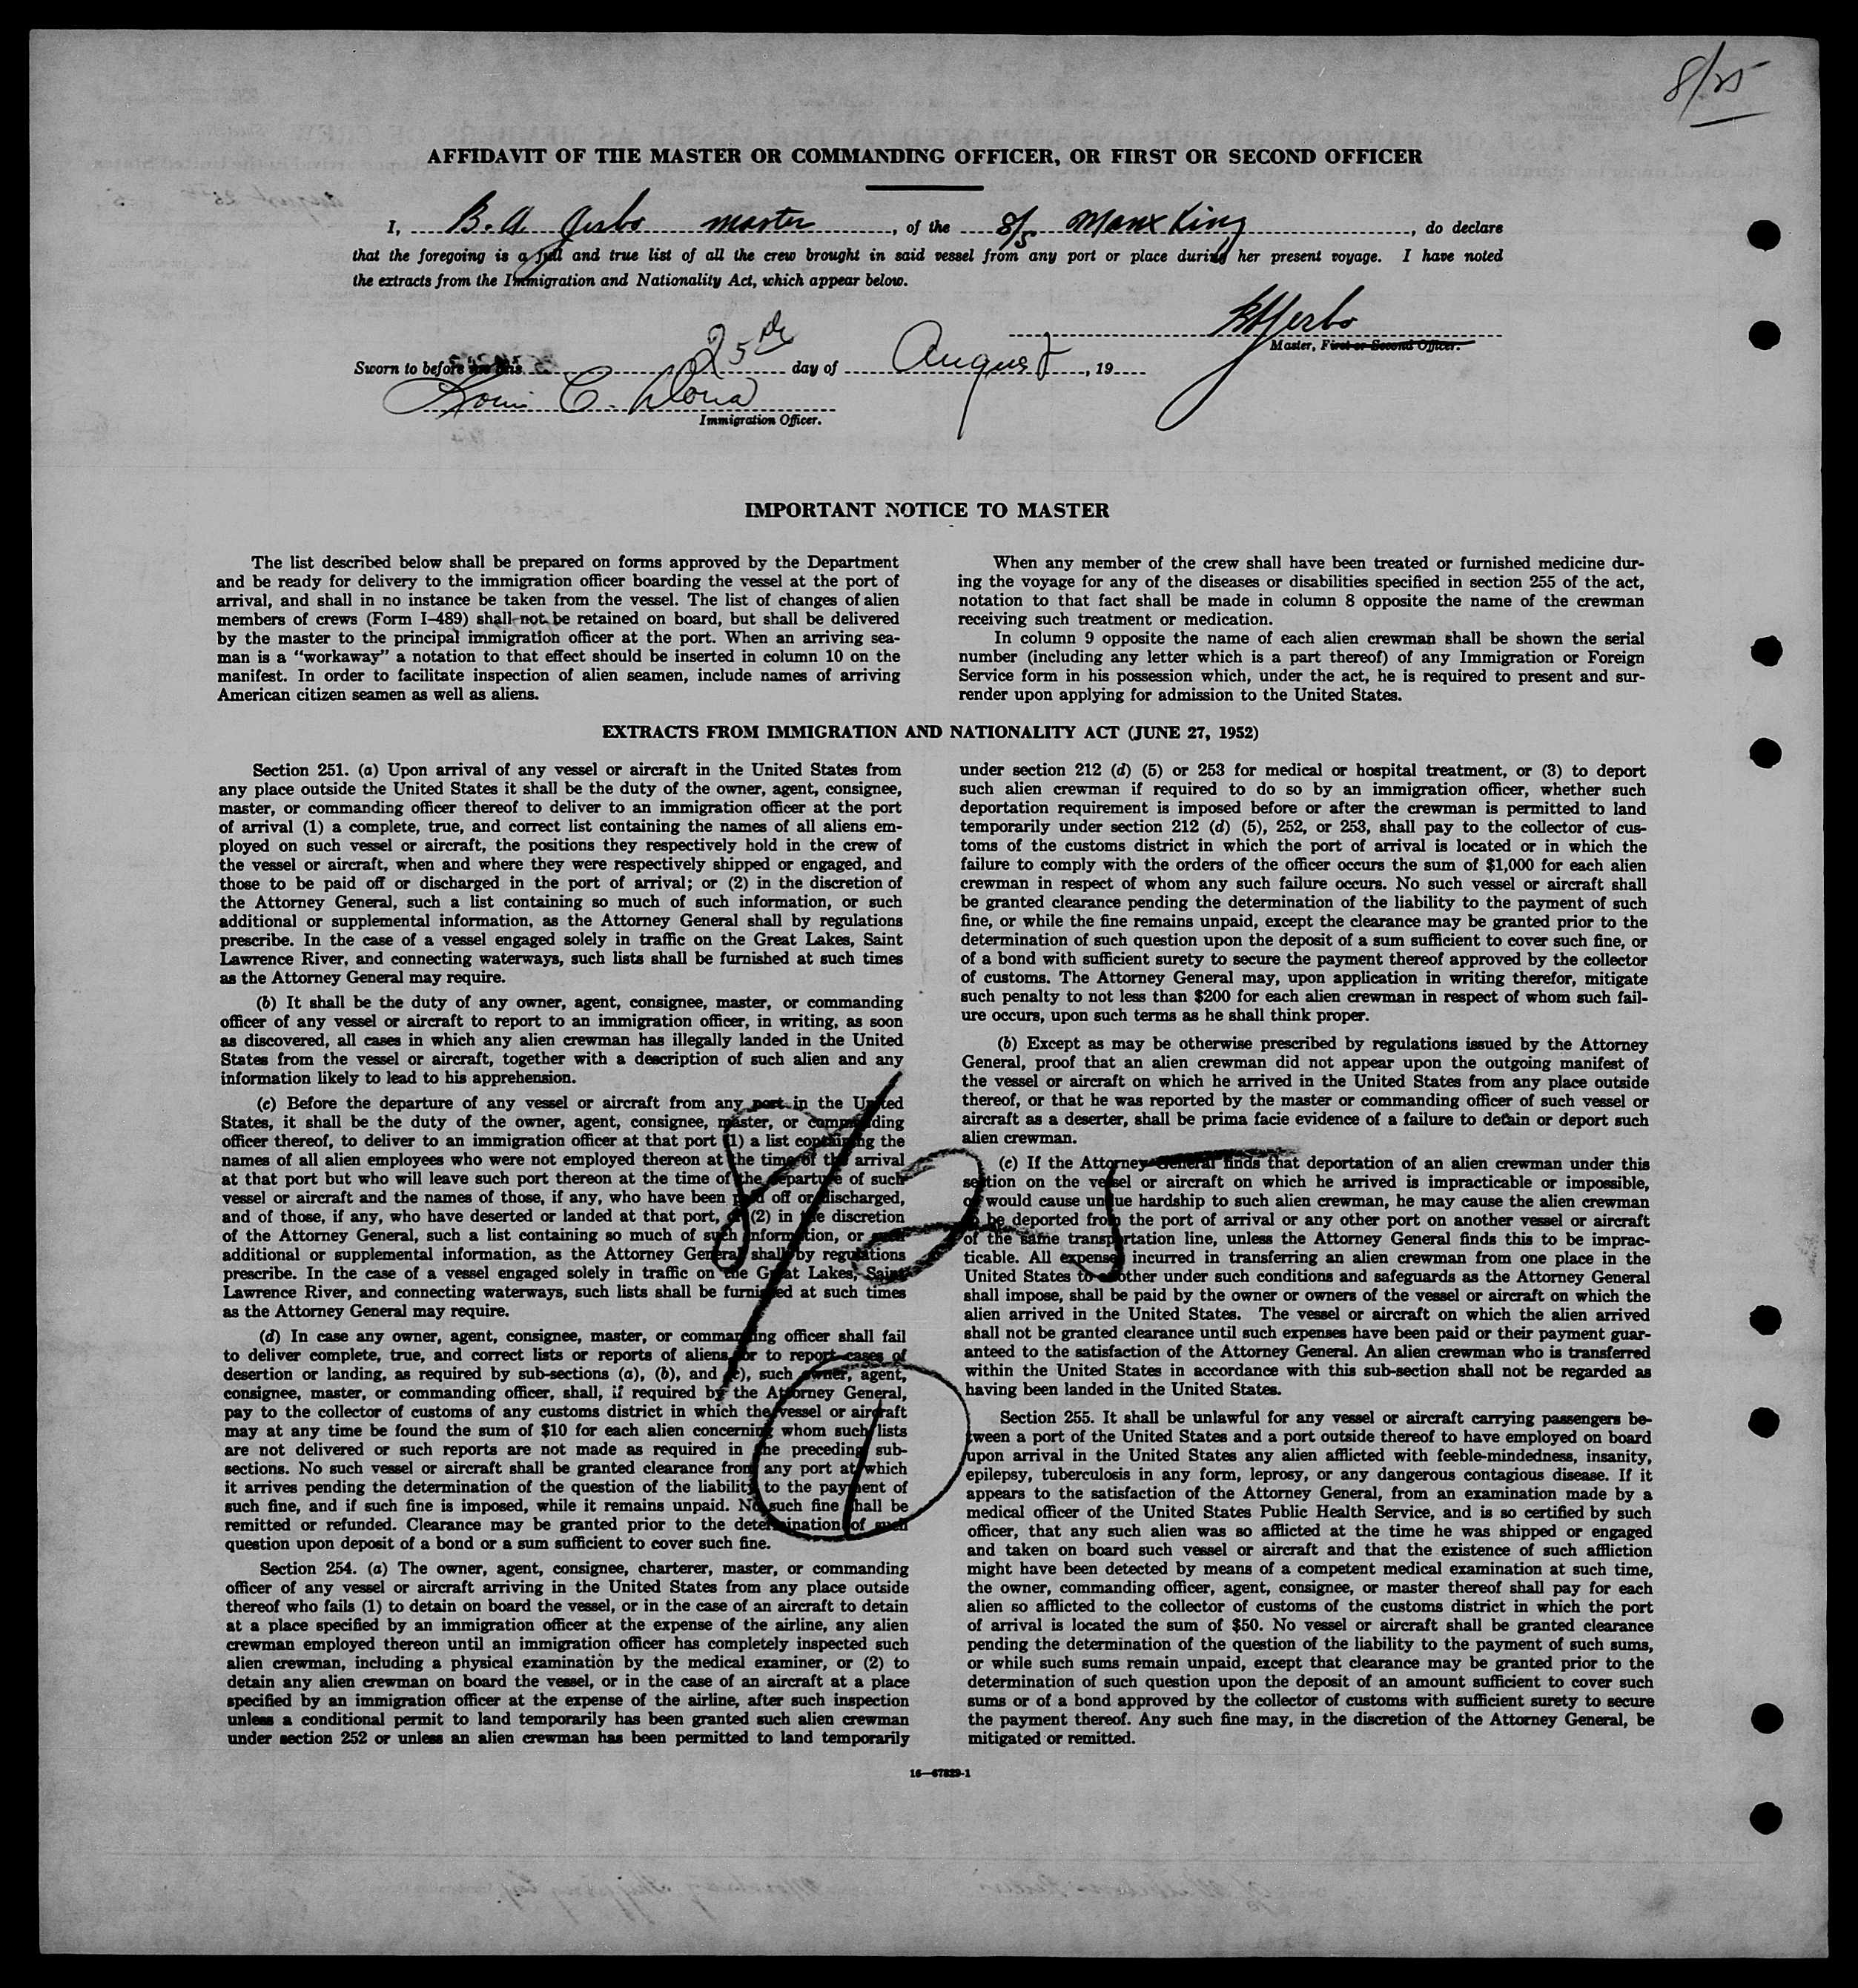 8/25
AFFIDAVIT OF THE MASTER OR COMMANDING OFFICER, OR FIRST OR SECOND OFFICER
I, B. A. Jerbo master, of the S/S Manx King, do declare
that the foregoing is a full and true list of all the crew brought in said vessel from any port or place during her present voyage. I have noted
the extracts from the Immigration and Nationality Act, which appear below.
Master, First or Second Officer.
Sworn to before me this 25th day of August, 19
C.
Immigration Officer.
IMPORTANT NOTICE TO MASTER
The list described below shall be prepared on forms approved by the Department
and be ready for delivery to the immigration officer boarding the vessel at the port of
arrival, and shall in no instance be taken from the vessel. The list of changes of alien
members of crews (Form I–489) shall not be retained on board, but shall be delivered
by the master to the principal immigration officer at the port. When an arriving sea-
man is a “workaway” a notation to that effect should be inserted in column 10 on the
manifest. In order to facilitate inspection of alien seamen, include names of arriving
American citizen seamen as well as aliens.
When any member of the crew shall have been treated or furnished medicine dur-
ing the voyage for any of the diseases or disabilities specified in section 255 of the act,
notation to that fact shall be made in column 8 opposite the name of the crewman
receiving such treatment or medication.
In column 9 opposite the name of each alien crewman shall be shown the serial
number (including any letter which is a part thereof) of any Immigration or Foreign
Service form in his possession which, under the act, he is required to present and sur-
render upon applying for admission to the United States.
EXTRACTS FROM IMMIGRATION AND NATIONALITY ACT (JUNE 27, 1952)
Section 251. (a) Upon arrival of any vessel or aircraft in the United States from
any place outside the United States it shall be the duty of the owner, agent, consignee,
master, or commanding officer thereof to deliver to an immigration officer at the port
of arrival (1) a complete, true, and correct list containing the names of all aliens em-
ployed on such vessel or aircraft, the positions they respectively hold in the crew of
the vessel or aircraft, when and where they were respectively shipped or engaged, and
those to be paid off or discharged in the port of arrival; or (2) in the discretion of
the Attorney General, such a list containing so much of such information, or such
additional or supplemental information, as the Attorney General shall by regulations
prescribe. In the case of a vessel engaged solely in traffic on the Great Lakes, Saint
Lawrence River, and connecting waterways, such lists shall be furnished at such times
as the Attorney General may require.
(b) It shall be the duty of any owner, agent, consignee, master, or commanding
officer of any vessel or aircraft to report to an immigration officer, in writing, as soon
as discovered, all cases in which any alien crewman has illegally landed in the United
States from the vessel or aircraft, together with a description of such alien and any
information likely to lead to his apprehension.
(c) Before the departure of any vessel or aircraft from any port in the United
States, it shall be the duty of the owner, agent, consignee, master, or commanding
officer thereof, to deliver to an immigration officer at that port (1) a list containing the
names of all alien employees who were not employed thereon at the time of the arrival
at that port but who will leave such port thereon at the time of the departure of such
vessel or aircraft and the names of those, if any, who have been paid off or discharged,
and of those, if any, who have deserted or landed at that port, or (2) in the discretion
of the Attorney General, such a list containing so much of such information, or such
additional or supplemental information, as the Attorney General shall by regulations
prescribe. In the case of a vessel engaged solely in traffic on the Great Lakes, Saint
Lawrence River, and connecting waterways, such lists shall be furnished at such times
as the Attorney General may require.
(d) In case any owner, agent, consignee, master, or commanding officer shall fail
to deliver complete, true, and correct lists or reports of aliens, or to report cases of
desertion or landing, as required by sub-sections (a), (b), and (c), such owner, agent,
consignee, master, or commanding officer, shall, if required by the Attorney General,
pay to the collector of customs of any customs district in which the vessel or aircraft
may at any time be found the sum of $10 for each alien concerning whom such lists
are not delivered or such reports are not made as required in the preceding sub-
sections. No such vessel or aircraft shall be granted clearance from any port at which
it arrives pending the determination of the question of the liability to the payment of
such fine, and if such fine is imposed, while it remains unpaid. No such fine shall be
remitted or refunded. Clearance may be granted prior to the determination of such
question upon deposit of a bond or a sum sufficient to cover such fine.
Section 254. (a) The owner, agent, consignee, charterer, master, or commanding
officer of any vessel or aircraft arriving in the United States from any place outside
thereof who fails (1) to detain on board the vessel, or in the case of an aircraft to detain
at a place specified by an immigration officer at the expense of the airline, any alien
crewman employed thereon until an immigration officer has completely inspected such
alien crewman, including a physical examination by the medical examiner, or (2) to
detain any alien crewman on board the vessel, or in the case of an aircraft at a place
specified by an immigration officer at the expense of the airline, after such inspection
unless a conditional permit to land temporarily has been granted such alien crewman
under section 252 or unless an alien crewman has been permitted to land temporarily
under section 212 (d) (5) or 253 for medical or hospital treatment, or (3) to deport
such alien crewman if required to do so by an immigration officer, whether such
deportation requirement is imposed before or after the crewman is permitted to land
temporarily under section 212 (d) (5), 252, or 253, shall pay to the collector of cus-
toms of the customs district in which the port of arrival is located or in which the
failure to comply with the orders of the officer occurs the sum of $1,000 for each alien
crewman in respect of whom any such failure occurs. No such vessel or aircraft shall
be granted clearance pending the determination of the liability to the payment of such
fine, or while the fine remains unpaid, except the clearance may be granted prior to the
determination of such question upon the deposit of a sum sufficient to cover such fine, or
of a bond with sufficient surety to secure the payment thereof approved by the collector
of customs. The Attorney General may, upon application in writing therefor, mitigate
such penalty to not less than $200 for each alien crewman in respect of whom such fail-
ure occurs, upon such terms as he shall think proper.
(b) Except as may be otherwise prescribed by regulations issued by the Attorney
General, proof that an alien crewman did not appear upon the outgoing manifest of
the vessel or aircraft on which he arrived in the United States from any place outside
thereof, or that he was reported by the master or commanding officer of such vessel or
aircraft as a deserter, shall be prima facie evidence of a failure to detain or deport such
alien crewman.
(c) If the Attorney General finds that deportation of an alien crewman under this
section on the vessel or aircraft on which he arrived is impracticable or impossible,
or would cause undue hardship to such alien crewman, he may cause the alien crewman
to be deported from the port of arrival or any other port on another vessel or aircraft
of the same transportation line, unless the Attorney General finds this to be imprac-
ticable. All expenses incurred in transferring an alien crewman from one place in the
United States to another under such conditions and safeguards as the Attorney General
shall impose, shall be paid by the owner or owners of the vessel or aircraft on which the
alien arrived in the United States. The vessel or aircraft on which the alien arrived
shall not be granted clearance until such expenses have been paid or their payment guar-
anteed to the satisfaction of the Attorney General. An alien crewman who is transferred
within the United States in accordance with this sub-section shall not be regarded as
having been landed in the United States.
Section 255. It shall be unlawful for any vessel or aircraft carrying passengers be-
tween a port of the United States and a port outside thereof to have employed on board
upon arrival in the United States any alien afflicted with feeble-mindedness, insanity,
epilepsy, tuberculosis in any form, leprosy, or any dangerous contagious disease. If it
appears to the satisfaction of the Attorney General, from an examination made by a
medical officer of the United States Public Health Service, and is so certified by such
officer, that any such alien was so afflicted at the time he was shipped or engaged
and taken on board such vessel or aircraft and that the existence of such affliction
might have been detected by means of a competent medical examination at such time,
the owner, commanding officer, agent, consignee, or master thereof shall pay for each
alien so afflicted to the collector of customs of the customs district in which the port
of arrival is located the sum of $50. No vessel or aircraft shall be granted clearance
pending the determination of the question of the liability to the payment of such sums,
or while such sums remain unpaid, except that clearance may be granted prior to the
determination of such question upon the deposit of an amount sufficient to cover such
sums or of a bond approved by the collector of customs with sufficient surety to secure
the payment thereof. Any such fine may, in the discretion of the Attorney General, be
mitigated or remitted.
8/25
1
16—67829-1